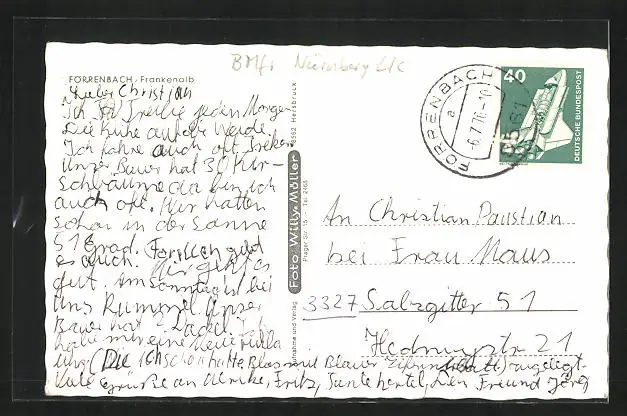 FÖRRENBACH, Frankenalb
Nürnberg
FÖRRENBACH
a
-6.7.76
8561
40
DEUTSCHE BUNDESPOST
Lieber Christian
Ich treibe jeden Morgen
die Kühe auf die Weide.
Ich fahre auch oft Treker.
Unser Bauer hat 30 Kir-
schbäume da bin ich
auch oft. Wir hatten
schon in der Sonne
51 Grad. gibt
es auch. Mir geht es
gut. Am Sonntag ist bei
uns Rummel. Unser
Bauer hat 2 Dackel.
habe mir eine neue
(Die ich schon hatte, Blas mit Blauer angelegt.
Viele Grüße an Ulrike, Fritz, Tante Hertel, Dein Freund Jörg
Foto Willy Müller
Hersbruck
Aufnahme und Verlag
An Christian Paustian
bei Frau Maus
3327 Salzgitter 51
Hedwigstr 21